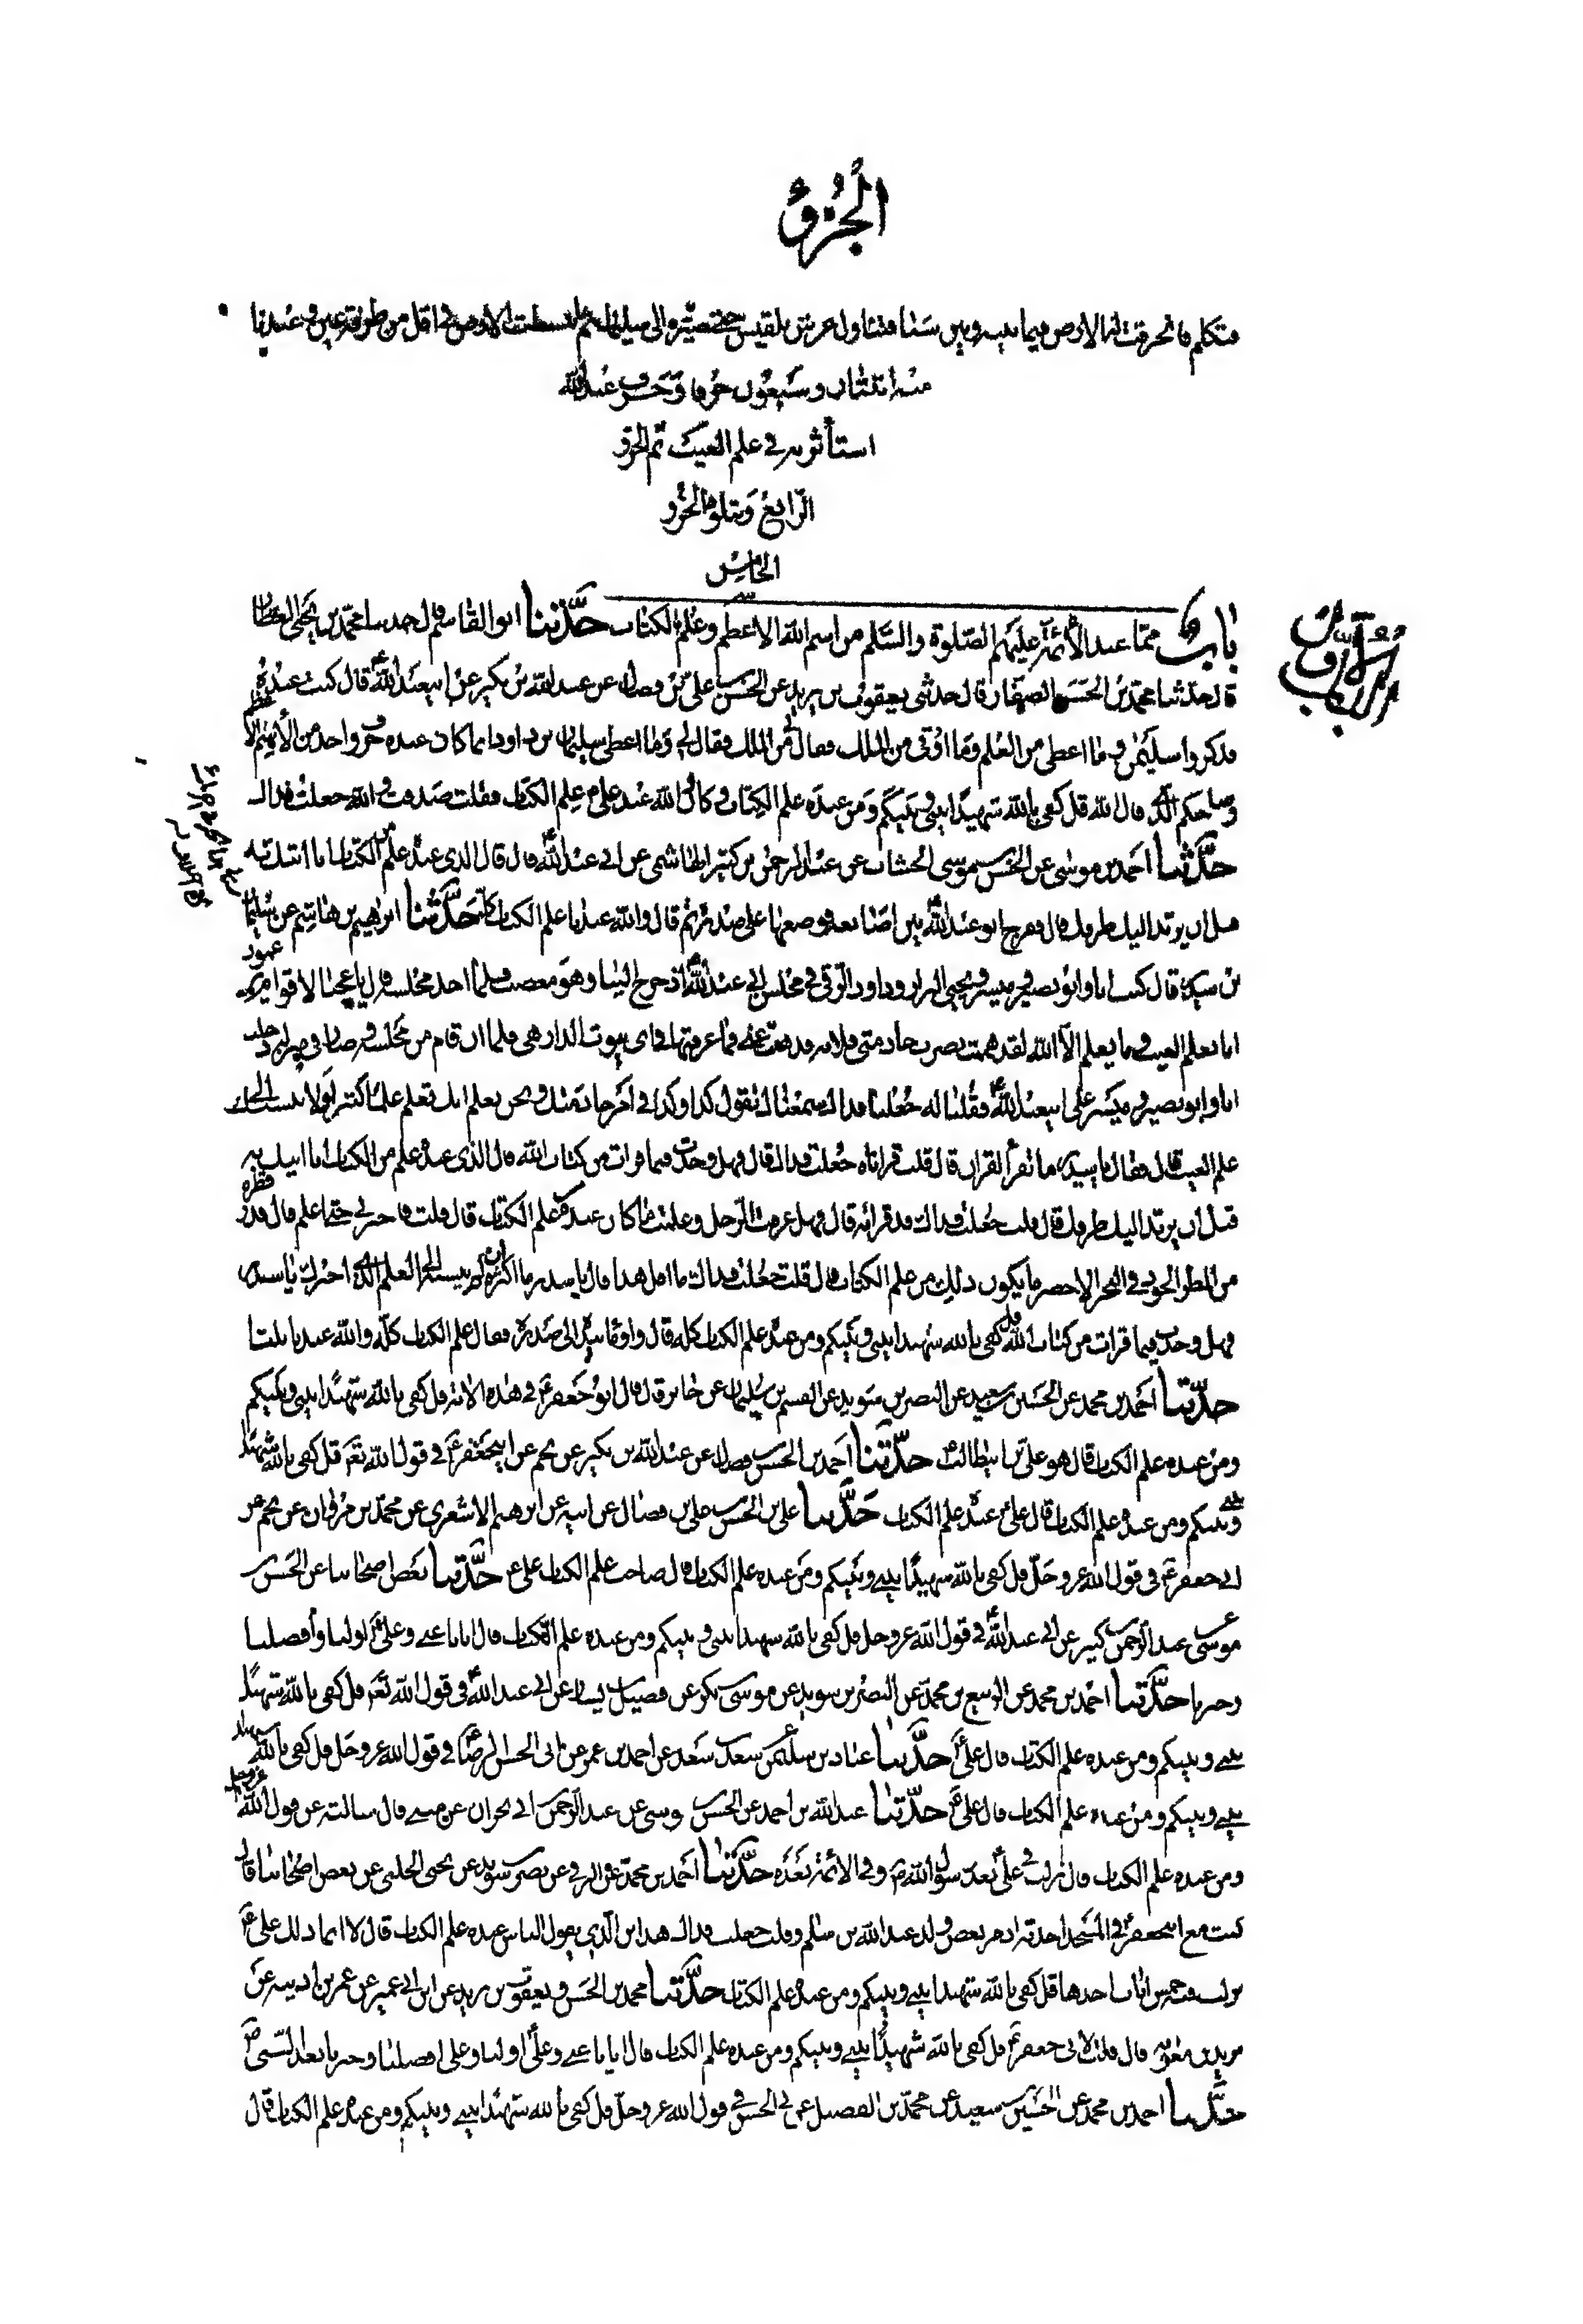 الجزؤ
فتكلم فانخرقت له الارض فيما بينه وبين سبا فتناول عرش بلقيس حتى صيّره الى سليمان ثم انبسطت الارض في اقل من طرفة عين وعندنا
منه اثنتان وسبعون حرفا وحرف عند الله
استأثر به في علم الغيب تم الجزؤ
الرابع ويتلوه الجزؤ
الخامس
باب مما عند الأئمة عليهم الصلوة والسلم من اسم الله الاعظم وعلم الكتاب حدّثنا ابو القاسم قال حدثنا محمد بن يحيى العطار
قال حدثنا محمد بن الحسن الصفار قال حدثنى يعقوب بن يزيد عن الحسن بن علي بن فضال عن عبد الله بن بكير عن ابيعبد الله ع قال كنت عنده
فذكروا سليمن وما اعطى من العلم وما اوتى من الملك فقال لي وما اعطى سليمان بن داود انما كان عنده حرف واحد من الاسم الا
وصاحبكم الذي قال الله قل كفى بالله شهيدا بيني وبينكم ومن عنده علم الكتاب وكان والله عند علي ع علم الكتاب فقلت صدقت والله جعلت فداك
حدّثنا احمد بن موسى عن الحسن بن موسى الخشاب عن عبد الرحمن بن كثير الهاشمى عن ابى عبد الله ع قال قال الذى عنده علم من الكتاب انا اتيك به
قبل ان يرتد اليك طرفك قال ففرج ابو عبد الله ع بين اصابعه فوضعها على صدره ثم قال والله عندنا علم الكتاب كله حدّثنا ابرهيم بن هاشم عن سليمان
بن سدير قال كنت انا وابو بصير وميسر ويحيى البزاز وداود الرقى في مجلس ابى عبد الله ع اذ خرج الينا وهو مغضب فلما اخذ مجلسه قال يا عجبا لاقوام يزعمون
انا نعلم الغيب وما يعلم الغيب الا الله لقد هممت بضرب خادمتى فلانة فذهبت عني فما عرفتها في اى بيوت الدار هى فلما ان قام من مجلسه وصار في منزله دخلت
انا وابو بصير وميسر على ابيعبد الله ع فقلنا له جعلنا فداك سمعناك تقول كذا وكذا في امر خادمتك ونحن نعلم انك تعلم علما كثيرا ولا ننسبك الى
علم الغيب قال فقال يا سدير ما تقرأ القران قال قلت قراناه جعلت فداك قال فهل وجدت فيما قرات من كتاب الله قال الذى عنده علم من الكتاب انا اتيك به
قبل ان يرتد اليك طرفك قال قلت جعلت فداك قد قراته قال فهل عرفت الرجل وعلمت ما كان عنده من علم الكتاب قال قلت فاخبرنى حتى اعلم قال قدر قطرة
من المطر الجود في البحر الاخضر ما يكون ذلك من علم الكتاب قال قلت جعلت فداك ما اقل هذا قال يا سدير ما اكثره ان لم ينسبه الى العلم الذى اخبرك يا سدير
فهل وجدت فيما قرات من كتاب الله قل كفى بالله شهيدا بيني وبينكم ومن عنده علم الكتاب كله قال واومأ بيده الى صدره فقال علم الكتاب كله والله عندنا ثلثا
حدّثنا احمد بن محمد عن الحسين بن سعيد عن النضر بن سويد عن القسم بن سليمان عن جابر قال قال ابو جعفر ع في هذه الاية قل كفى بالله شهيدا بيني وبينكم
ومن عنده علم الكتاب قال هو علي بن ابيطالب حدّثنا احمد بن الحسن بن فضال عن عبد الله بن بكير عن نجم عن ابيجعفر ع في قول الله تع قل كفى بالله شهيدا
بيني وبينكم ومن عنده علم الكتاب قال علي ع عنده علم الكتاب حدّثنا علي بن الحسن بن علي بن فضال عن ابيه عن ابرهيم الاشعري عن محمد بن مروان عن نجم عن
ابى جعفر ع في قول الله عز وجل قل كفى بالله شهيدا بيني وبينكم ومن عنده علم الكتاب قال صاحب علم الكتاب علي ع حدّثنا بعض اصحابنا عن الحسن بن
موسى عن عبد الرحمن بن كثير عن ابى عبد الله ع في قول الله عز وجل قل كفى بالله شهيدا بيني وبينكم ومن عنده علم الكتاب قال ايانا عنى وعلي ع اولنا وأفضلنا
وخيرنا حدّثنا احمد بن محمد عن الربيع بن محمد عن النضر بن سويد عن موسى بن بكر عن فضيل بن يسار عن ابى عبد الله ع في قول الله تع قل كفى بالله شهيدا
بيني وبينكم ومن عنده علم الكتاب قال علي ع حدّثنا عباد بن سليمن عن سعد بن سعد عن احمد بن عمر عن ابى الحسن الرضا ع في قول الله عز وجل قل كفى بالله شهيدا
بيني وبينكم ومن عنده علم الكتاب قال علي ع حدّثنا عبد الله بن احمد عن الحسن بن موسى عن عبد الرحمن بن ابى نجران عن مثنى قال سالته عن قول الله عز وجل
ومن عنده علم الكتاب قال نزلت في علي ع بعد رسول الله ص وفي الائمة بعده حدّثنا احمد بن محمد عن البرقى عن نضر بن سويد عن يحيى الحلبى عن بعض اصحابنا قال
كنت مع ابيجعفر ع في المسجد احدثه اذ مر بعض ولد عبد الله بن سلم فقلت جعلت فداك هذا ابن الذى يقول الناس عنده علم الكتاب قال لا انما ذلك علي ع
نزلت فيه خمس ايات احدها قل كفى بالله شهيدا بيني وبينكم ومن عنده علم الكتاب حدّثنا محمد بن الحسن ويعقوب بن يزيد عن ابن ابى عمير عن عمر بن اذينة عن
بريد بن معوية قال قلت لابى جعفر ع قل كفى بالله شهيدا بيني وبينكم ومن عنده علم الكتاب قال ايانا عنى وعلي ع اولنا وعلى افضلنا وخيرنا بعد النبى ص
حدّثنا احمد بن محمد عن الحسين بن سعيد عن محمد بن الفضيل عن ابى الحسن ع في قول الله عز وجل قل كفى بالله شهيدا بيني وبينكم ومن عنده علم الكتاب قال